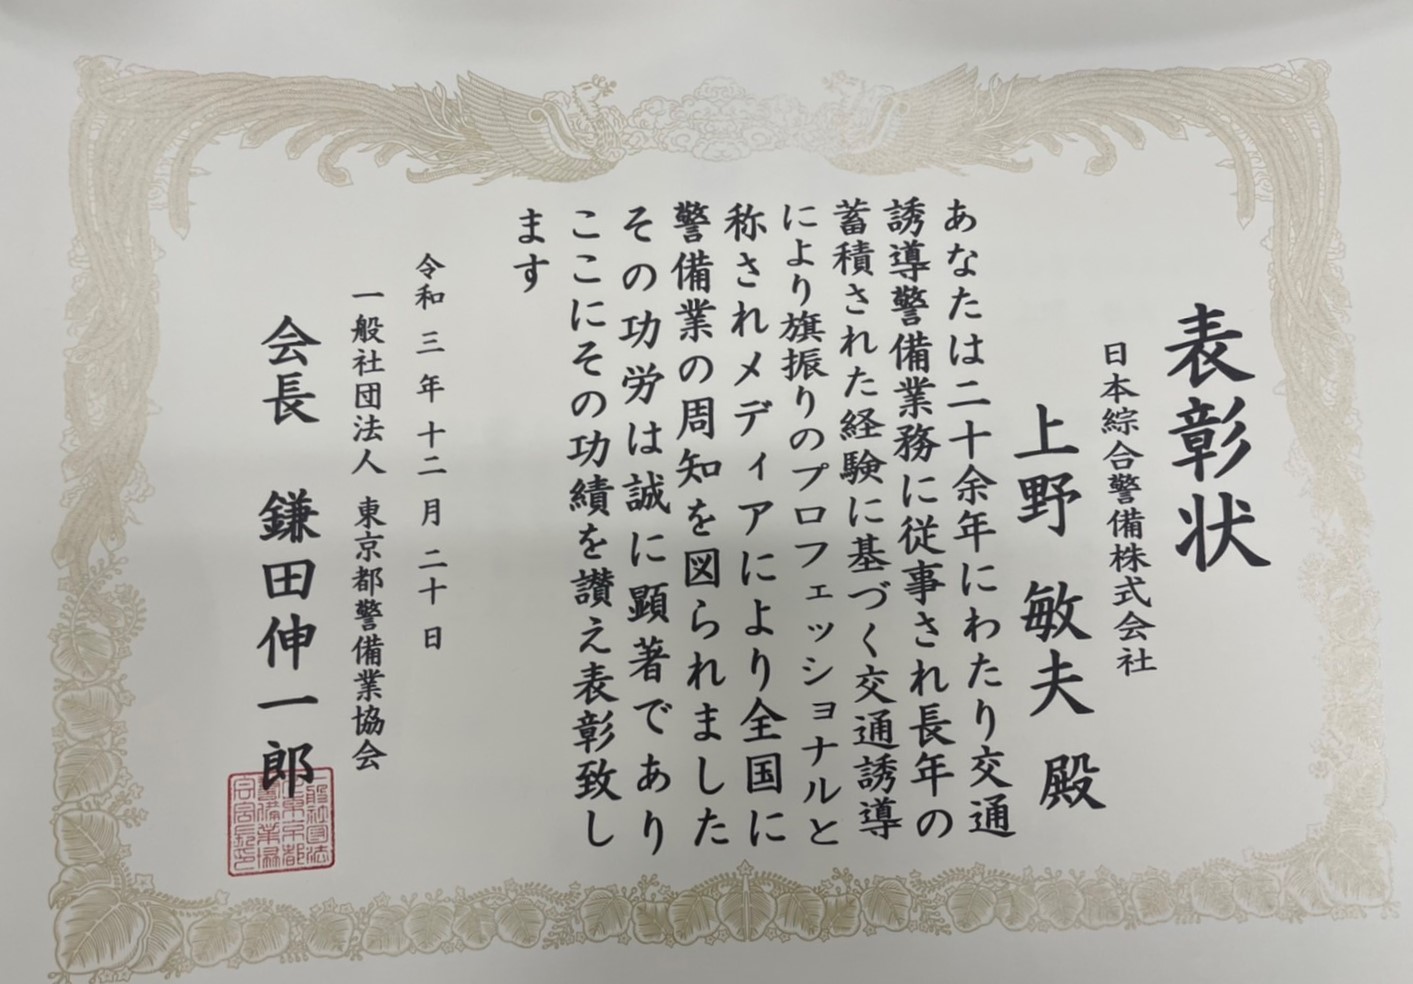 表彰状
日本綜合警備株式会社
上野 敏夫 殿
あなたは二十余年にわたり交通
誘導警備業務に従事され長年の
蓄積された経験に基づく交通誘導
により旗振りのプロフェッショナルと
称されメディアにより全国に
警備業の周知を図られました
その功労は誠に顕著であり
ここにその功績を讃え表彰致し
ます
令和三年十二月二十日
一般社団法人 東京都警備業協会
会長 鎌田伸一郎